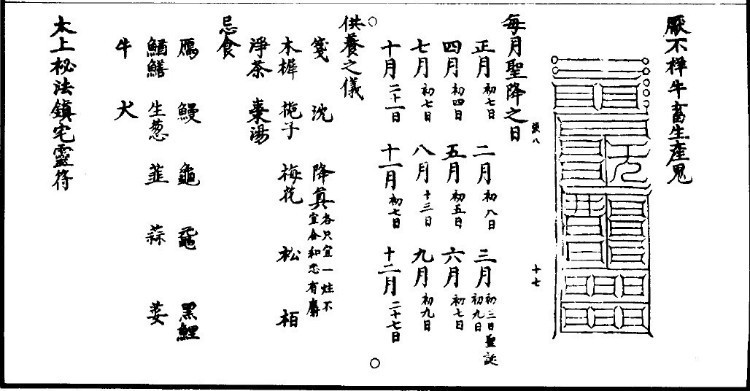 厭不樺牛畜生產鬼
張八
十七
每月聖降之日
正月初七日 二月初八日 三月初三日聖誕初九日
四月初四日 五月初五日 六月初七日
七月初七日 八月十三日 九月初九日
十月二十一日 十一月初七日 十二月二十七日
供養之儀
箋 沈 降真各只宜一炷不宜合和恐有麝
木樨 梔子 梅花 松 栢
淨茶 棗湯
忌食
鴈 鰻 龜 黿 黑鯉
鰌鱔 生葱 韮 蒜 荽
牛 犬
太上秘法鎮宅靈符